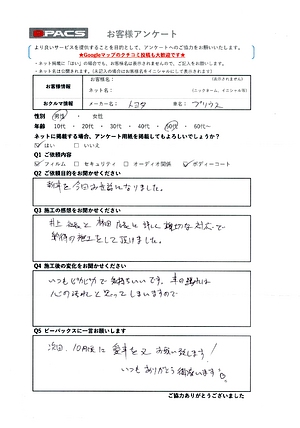 PACS お客様アンケート
より良いサービスを提供することを目的として、アンケートへのご協力をお願いいたします。
★Googleマップのクチコミ投稿も大歓迎です★
・ネット掲載に「はい」の場合でも、お客様名は表示されませんので、ご記入をお願いします。
・ネット名は公開されます。(未記入の場合はお客様名をイニシャルにして表示されます)
お客様情報 お客様名: (表示されません)
ネット名: (ニックネーム、イニシャル等)
おクルマ情報 メーカー名: トヨタ 車名: プリウス
性別 男性 ・ 女性
年齢 10代 ・ 20代 ・ 30代 ・ 40代 ・ 50代 ・ 60代~
ネットに掲載する場合、アンケート用紙を掲載してもよろしいでしょうか?
はい いいえ
Q1 ご依頼内容
フィルム セキュリティ オーディオ関係 ボディーコート
Q2 ご依頼目的をお聞かせください
新車を今回お世話になりました。
Q3 施工の感想をお聞かせください
井上 店長と 詳しく 親切な対応で
納得の施工をして頂けました。
Q4 施工後の変化をお聞かせください
いつもピカピカで気持ちいいです。車の汚れは
心の汚れと思ってしまいますので
Q5 ピーパックスに一言お願いします
次回、10月頃に愛車を又お願い致します!
いつもありがとう御座います
ご協力ありがとうございました